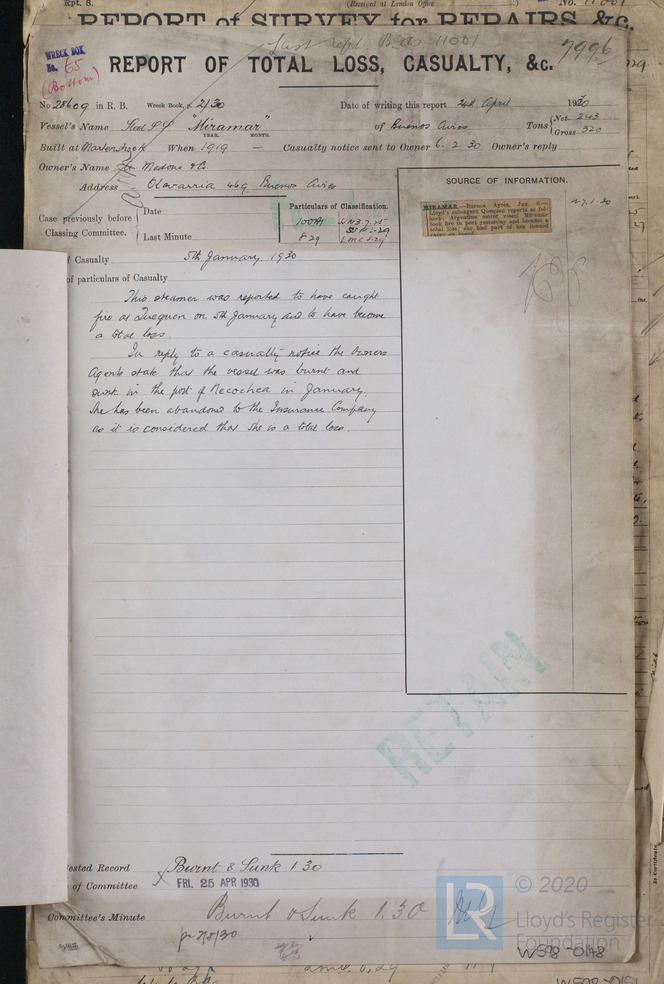 Rpt. 8.
(Received at London Office
No. 11001
REPORT of SURVEY for REPAIRS, &c.
Last rept. B. As 11001
7996
WRECK BOX
No. 65
(Bottom)
REPORT OF TOTAL LOSS, CASUALTY, &c.
No. 28609 in R. B. Wreck Book, p. 2/30 Date of writing this report 24th April 1930
Vessel's Name "Miramar" of Buenos Aires Tons Net 243 Gross 320
YEAR. MONTH.
Built at When 1919 — Casualty notice sent to Owner 6. 2. 30 Owner's reply
Owner's Name Medone & Co.
Address Olavarria 469, Buenos Aires
SOURCE OF INFORMATION.
Case previously before Classing Committee.
Date
Last Minute
Particulars of Classification.
100A1
8 29
LMC 8.29
MIRAMAR.—Buenos Ayres, Jan. 6.—
Lloyd's sub-agent Quequen reports as fol-
lows: Argentine motor vessel Miramar
took fire in port yesterday and became a
total loss; she had part of her inward
cargo on board.
27.1.30
of Casualty 5th January, 1930
of particulars of Casualty
This steamer was reported to have caught
fire at Quequen on 5th January and to have become
a total loss.
In reply to a casualty notice the Owners
Agents state that the vessel was burnt and
sunk in the port of Necochea in January.
She has been abandoned to the Insurance Company
as it is considered that she is a total loss.
RETAIN
ested Record Burnt & Sunk 1.30
of Committee FRI. 25 APR 1930
Committee's Minute Burnt & Sunk 1.30
LR
© 2020
Lloyd's Register
Foundation
W598-0148
W598-0151